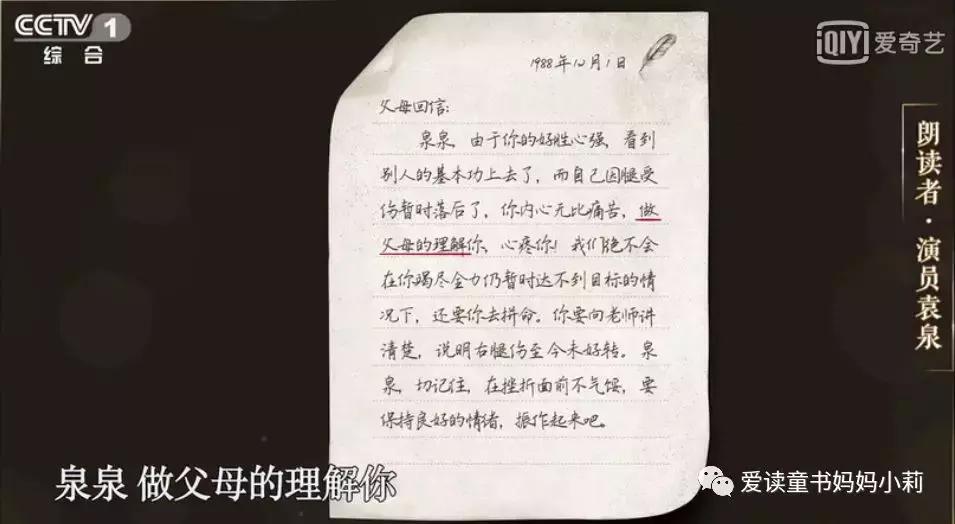 CCTV 1
综合
iQIYI 爱奇艺
1988年12月1日
父母回信:
泉泉,由于你的好胜心强,看到
别人的基本功上去了,而自己因腿受
伤暂时落后了,你内心无比痛苦,做
父母的理解你、心疼你!我们绝不会
在你竭尽全力仍暂时达不到目标的情
况下,还要你去拼命。你要向老师讲
清楚,说明右腿伤至今未好转。泉
泉,切记住,在挫折面前不气馁,要
保持良好的情绪,振作起来吧。
朗读者·演员袁泉
泉泉 做父母的理解你
爱读童书妈妈小莉